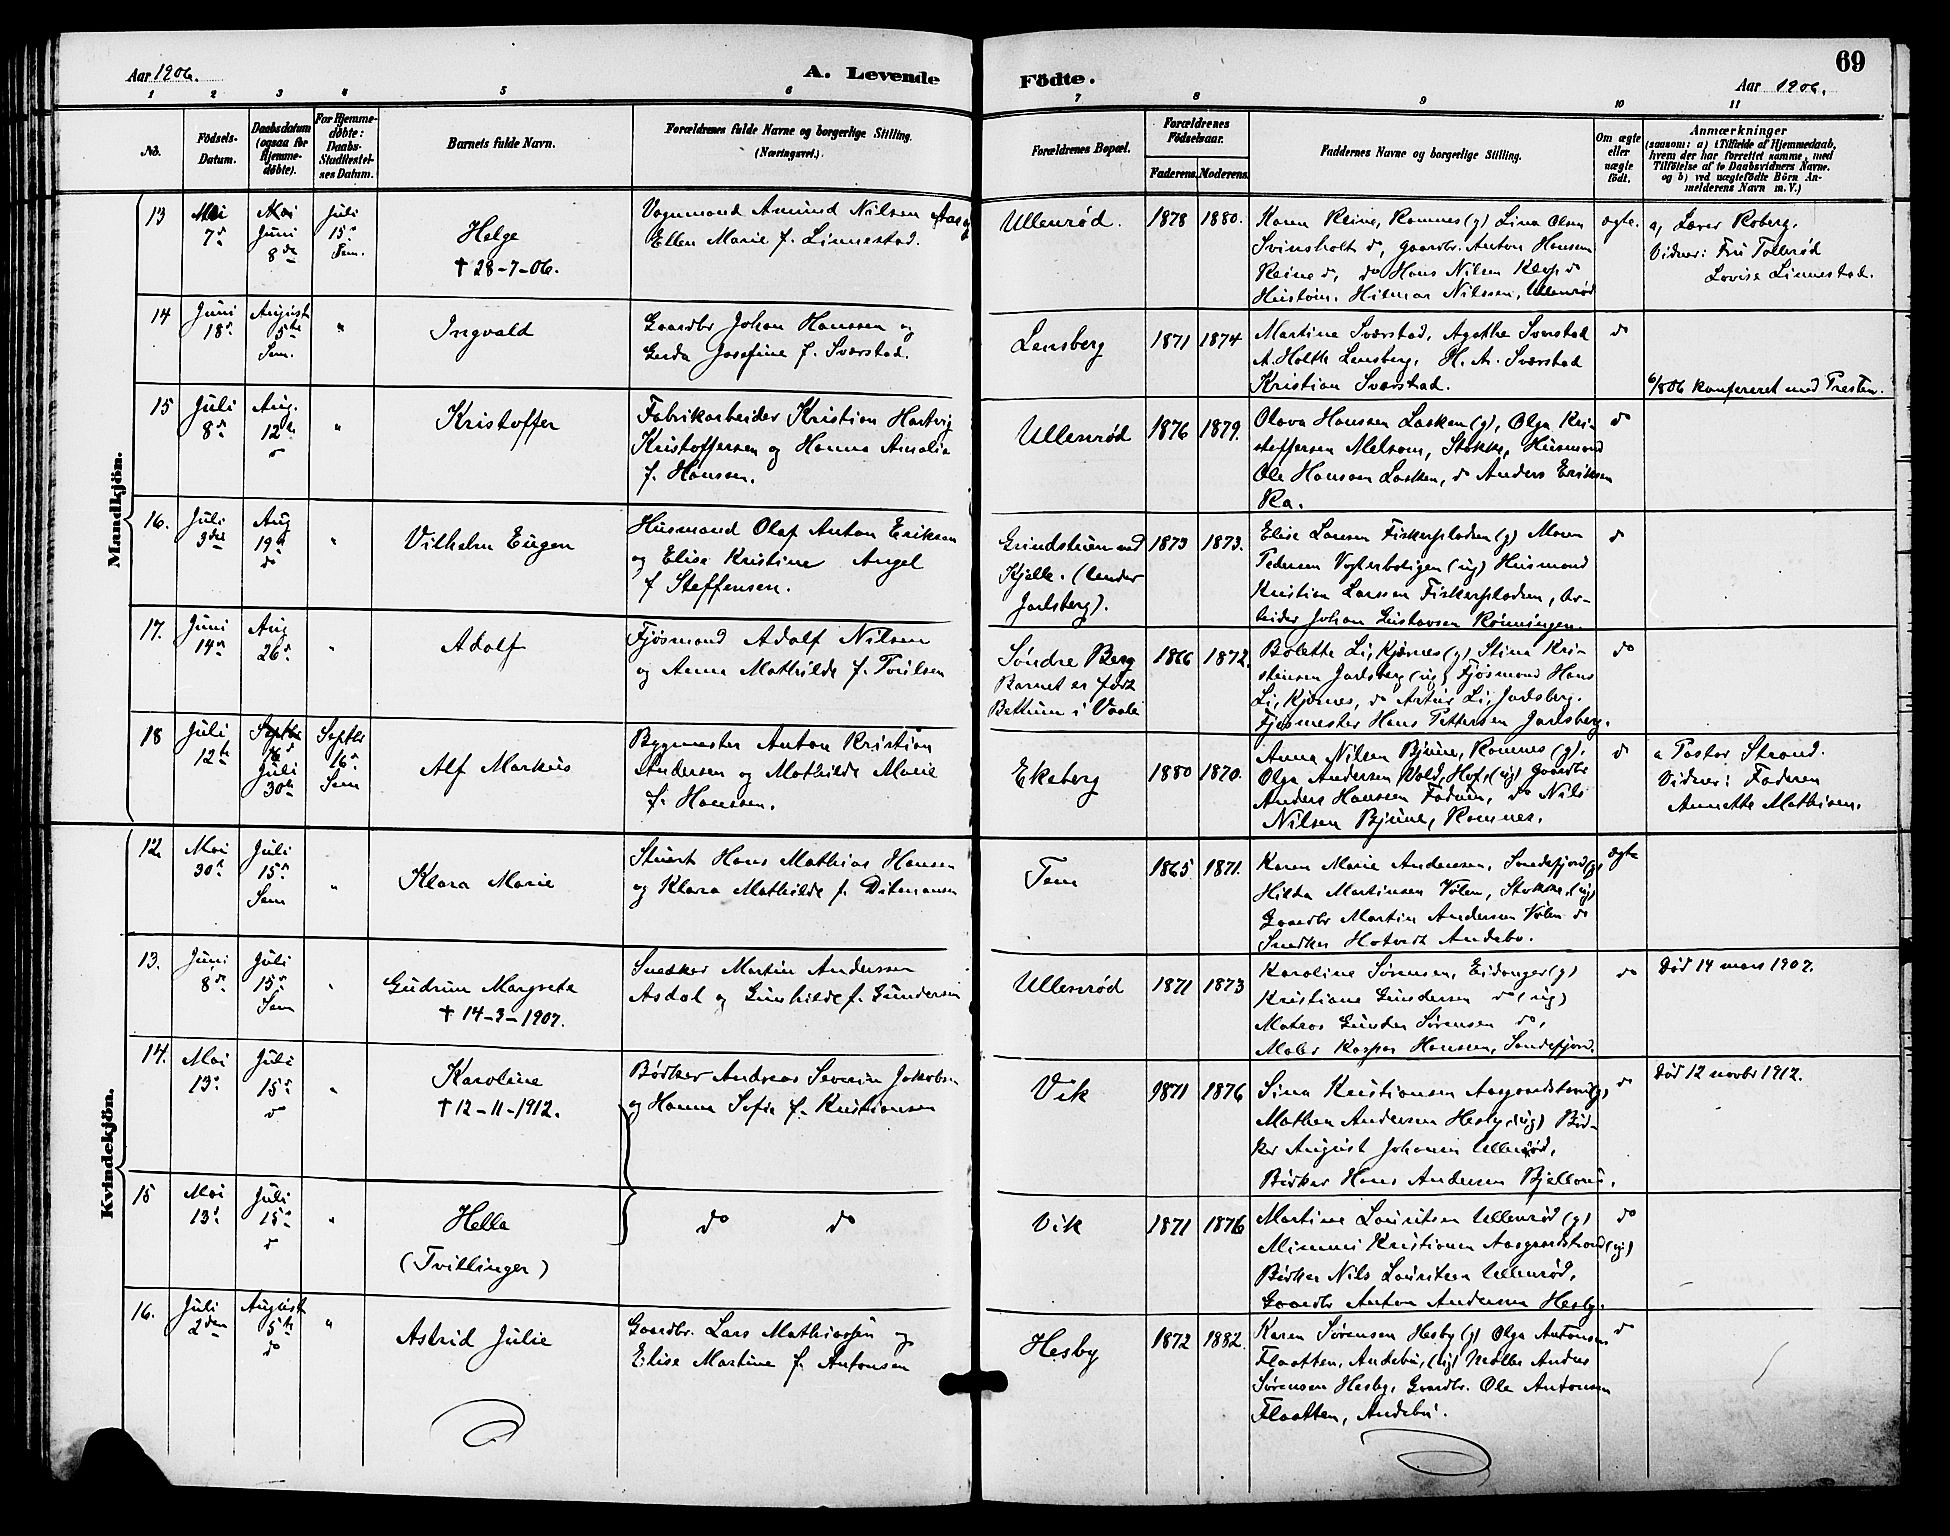 Aar 1906.
A. Levende
Födte.
69
Aar 1906.
1 2 3 4 5 6 7 8 9 10 11
No.
Födsels-
Datum.
Daabsdatum
(ogsaa for
Hjemme-
døbte).
For Hjemme-
døbte:
Daabs-
Stadfæstel-
ses Datum.
Barnets fulde Navn.
Forældrenes fulde Navne og borgerlige Stilling.
(Næringsvei.)
Forældrenes Bopæl.
Forældrenes
Födselsaar.
Faderens. Moderens.
Faddernes Navne og borgerlige Stilling.
Om ægte
eller
uægte
födt.
Anmærkninger
(saasom: a) i Tilfælde af Hjemmedaab,
hvem der har forrettet samme, med
Tilföielse af to Daabsvidners Navne.
og b) ved uægtefödte Börn An-
melderens Navn m. V.)
Mandkjön.
13
Mai
7de
Mai
Juni
8de
Juli
15de
Sem.
Helge
† 28-7-06.
Vognmand Amund Nilsen Aas og
Ellen Marie f. Linnestad.
Ullenrød.
1878 1880.
Karen Reine, Ramnes (g) Lina Olsen
Svinsholt do, gaardbr. Anton Hansen
Reine do, do Hans Nilsen Klop do
Hustøm. Hilmar Nilssen, Ullenrød
ægte.
a, Lærer Roberg.
Vidner: Fru Tollerød
Lovise Linnestad.
14
Juni
18de
August
5te
Sem.
"
Ingvald
Gaardbr Johan Hanssen og
Gerda Josefine f. Sværstad.
Lensberg
1871 1874
Martine Sværstad, Agathe Sværstad
A. Holth Lensberg, H. A. Sværstad
Kristian Sværstad.
do
6/8 06 konfereret med Presten.
15
Juli
8de
Aug.
12te
do
"
Kristoffer
Fabrikarbeider Kristian Hartvig
Kristoffersen og Hanna Amalie
f. Hansen.
Ullenrød
1876 1879.
Olava Hansen Lasken (g), Olga Kri-
stoffersen Melsom, Stokke, Husmand
Ole Hansen Lasken, do Anders Eriksen
Ra.
do
16.
Juli
3die
Aug
19de
do
"
Vilhelm Eugen
Husmand Olaf Anton Eriksen
og Elise Kristine Angel
f Steffensen.
Kjelle. (under
Jarlsberg).
1873 1873.
Elise Larsen Fiskerpladsen (g) Maren
Pedersen Vogterboligen (ug) Husmand
Kristian Larssen Fiskerpladsen, Ar-
beider Johan Gustavsen Rønningen.
do
17.
Juni
14de
Aug
26de
"
Adolf
Fjøsmand Adolf Nilsen
og Anna Mathilde f. Poulsen
Søndre Berg
Barnet er født
Bettum i Vaale
1866 1872.
Bolette Li, Kjærnes (g), Stina Kri-
stensen Jarlsberg (ug) Fjøsmand Hans
Li, Kjærnes, do Artur Li, Jarlsberg.
Fjøsmester Hans Pettersen Jarlsberg.
do
18
Juli
12te
Septbr
16de
Juli
30te
Septbr
16de
Sem
Alf Markus
Bygmester Anton Kristian
Andersen og Mathilde Marie
f. Hanssen.
Ekeberg
1880 1870.
Anna Nilsen Bjune, Ramnes (g).
Olga Andersen Wold, Hof, (ug) Gaardbr
Anders Hanssen Fadum, do Nils
Nilsen Bjune, Ramnes.
do
a Pastor Strand.
Vidner: Faderen
Annette Mathisen.
Kvindekjön.
12
Mai
30te
Juli
15de
Sem
"
Klara Marie
Stuert Hans Mathias Hansen
og Klara Mathilde f. Ditmansen
Tem
1865 1871.
Karen Marie Andersen, Sandefjord (g),
Hilda Martinsen Vølen, Stokke, (ug)
Gaardbr Martin Andersen Vølen do
Snedker Hotvedt Andebo.
ægte
13.
Juni
8de
Juli
15de
Sem
"
Gudrun Margrete
† 14-3-1907.
Snedker Martin Anderssen
Asdal og Gunhilde f. Gundersen
Ullenrød
1871 1873
Karoline Sørensen, Eidanger (g)
Kristiane Gundersen do (ug)
Matros Gunder Sørensen do,
Maler Kaspar Hanssen, Sandefjord.
do
Død 14 mars 1907.
14.
Mai
13de
Juli
15de
do
"
Karoline
† 12-11-1912.
Bødker Andreas Severin Jakobsen
og Hanna Sofie f. Kristiansen
Vik
1871 1876
Sina Kristiansen Aasgaardstrand (g),
Mathea Andersen Hesby, (ug) Bød-
ker August Johansen Ullenrød,
Bødker Hans Andersen Bjelland.
do
Død 12 novbr 1912.
15
Mai
13de
Juli
15de
do
"
Hella
(Tvillinger)
do do
Vik
1871 1876
Martine Lauritsen Ullenrød (g)
Mimmi Kristiansen Aasgaardstrand (ug)
Bødker Nils Lauritsen Ullenrød,
Gaardbr Anton Andersen Hesby.
do
16.
Juli
2den
August
5te
do
"
Astrid Julie
Gaardbr. Lars Mathiassen og
Elise Martine f. Antonsen
Hesby
1872 1882.
Karen Sørensen Hesby (g) Olga Antonsen
Flaatten, Andebu, (ug) Møller Anders
Sørensen Hesby, Gaardbr. Ole Antonsen
Flaatten, Andebu.
do